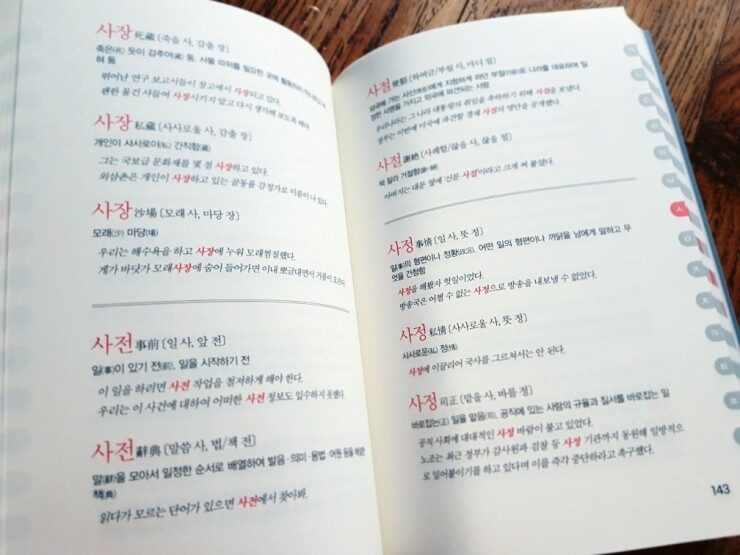 사장 死藏 (죽을 사, 감출 장)
죽은(死) 듯이 감추어(藏) 둠. 사물 따위를 필요한 곳에 활용하지
혀 둠
뛰어난 연구 보고서들이 창고에서 사장되고 있다.
괜한 물건 사들여 사장시키지 말고 다시 생각해 보도록 해라.
사장 私藏 (사사로울 사, 감출 장)
개인이 사사로이(私) 간직함(藏)
그는 국보급 문화재를 몇 점 사장하고 있다.
외삼촌은 개인이 사장하고 있는 골동품 감정가로 이름이 나 있다.
사장 沙場 (모래 사, 마당 장)
모래(沙) 마당(場)
우리는 해수욕을 하고 사장에 누워 모래찜질했다.
게가 바닷가 모래사장에 숨어 들어가면 이내 뽀글대면서 거품이
사전 事前 [일 사, 앞 전]
일(事)이 있기 전(前). 일을 시작하기 전
이 일을 하려면 사전 작업을 철저하게 해야 한다.
우리는 이 사건에 대하여 어떠한 사전 정보도 입수하지 못했다.
사전 辭典 [말씀 사, 법/책 전]
말(辭)을 모아서 일정한 순서로 배열하여 발음·의미·용법·어원 등을 해설한
책(典)
읽다가 모르는 단어가 있으면 사전에서 찾아봐.
사절 使節 (하여금/부림 사, 마디 절)
외국에 가는 사신(使臣)에게 지참하게 하던 부절(符節)로 나라를 대표하여 일
정한 사명을 가지고 외국에 파견되는 사람
우리나라는 그 나라 대통령의 취임을 축하하기 위해 사절을 보냈다.
정부는 이번에 미국에 파견할 경제 사절의 명단을 공개했다.
사절 謝絶 (사례할/끊을 사, 끊을 절)
딱 잘라 거절함(謝=絶)
아버지는 대문 옆에 '신문 사절'이라고 크게 써 붙였다.
사정 事情 (일 사, 뜻 정)
일(事)의 형편이나 정황(情況). 어떤 일의 형편이나 까닭을 남에게 말하고 무
엇을 간청함
사정을 해봤자 헛일이었다.
방송국은 어쩔 수 없는 사정으로 방송을 내보낼 수 없었다.
사정 私情 (사사로울 사, 뜻 정)
사사로운(私) 정(情)
사정에 이끌리어 국사를 그르쳐서는 안 된다.
사정 司正 (맡을 사, 바를 정)
바로잡는(正) 일을 맡음(司). 공직에 있는 사람의 규율과 질서를 바로잡는 일
공직 사회에 대대적인 사정 바람이 불고 있었다.
노조는 최근 정부가 감사원과 검찰 등 사정 기관까지 동원해 일방적으
로 밀어붙이기를 하고 있다며 이를 즉각 중단하라고 촉구했다.
ㅅ
143